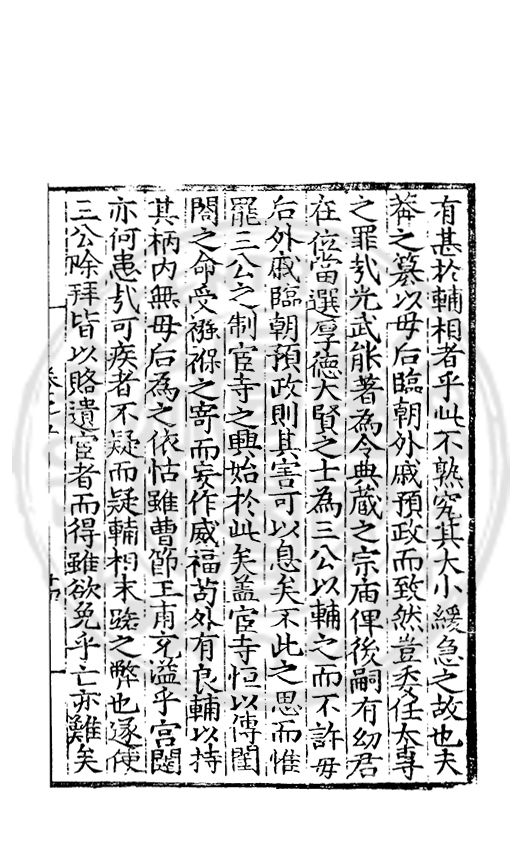 有甚於輔相者乎此不熟究其大小緩急之故也夫
莽之簒以毋后臨朝外戚預政而致然豈委任太專
之罪㢤光武能著為令典蔵之宗庙俾後嗣有㓜君
在位當選厚德大賢之士為三公以輔之而不許毋
后外戚臨朝預政則其害可以息矣不此之思而惟
罷三公之制宦寺之興始於此矣盖宦寺恒以傅閨
閤之命受襁褓之寄而妄作威福苟外有良輔以持
其柄内無毋后為之依怙雖曹節王甫充溢乎宫闥
亦何患㢤可疾者不疑而疑輔相末流之弊也遂使
三公除拜皆以賂遺宦者而得雖欲免乎亡亦難矣